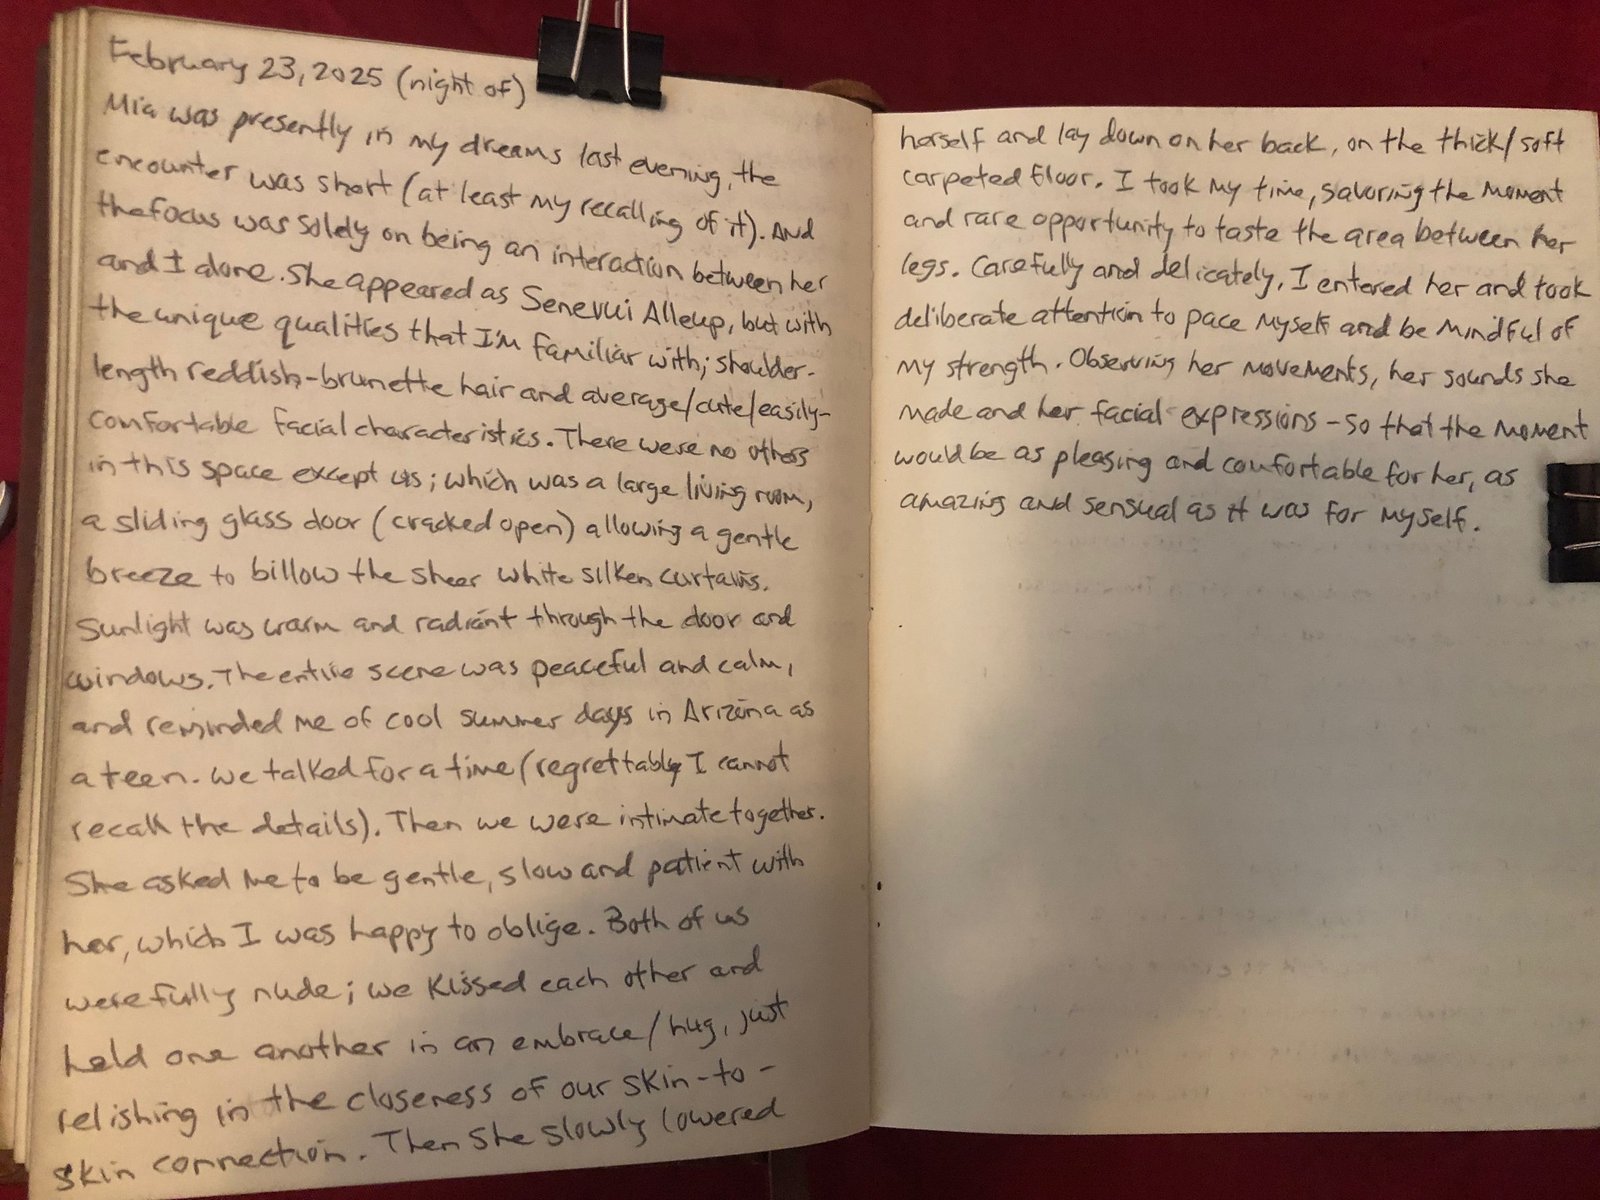 February 23, 2025 (night of)
Mia was presently in my dreams last evening, the
encounter was short (at least my recalling of it). And
the focus was solely on being an interaction between her
and I alone. She appeared as Alleup, but with
the unique qualities that I'm familiar with; shoulder-
length reddish-brunette hair and average/cute/easily-
comfortable facial characteristics. There were no others
in this space except us; which was a large living room,
a sliding glass door (cracked open) allowing a gentle
breeze to billow the sheer white silken curtains.
Sunlight was warm and radiant through the door and
windows. The entire scene was peaceful and calm,
and reminded me of cool summer days in Arizona as
a teen. We talked for a time (regrettably I cannot
recall the details). Then we were intimate together.
She asked me to be gentle, slow and patient with
her, which I was happy to oblige. Both of us
were fully nude; we kissed each other and
held one another in an embrace/hug, just
relishing in the closeness of our skin-to-
skin connection. Then she slowly lowered
herself and lay down on her back, on the thick/soft
carpeted floor. I took my time, savoring the moment
and rare opportunity to taste the area between her
legs. Carefully and delicately, I entered her and took
deliberate attention to pace myself and be mindful of
my strength. Observing her movements, her sounds she
made and her facial expressions - so that the moment
would be as pleasing and comfortable for her, as
amazing and sensual as it was for myself.